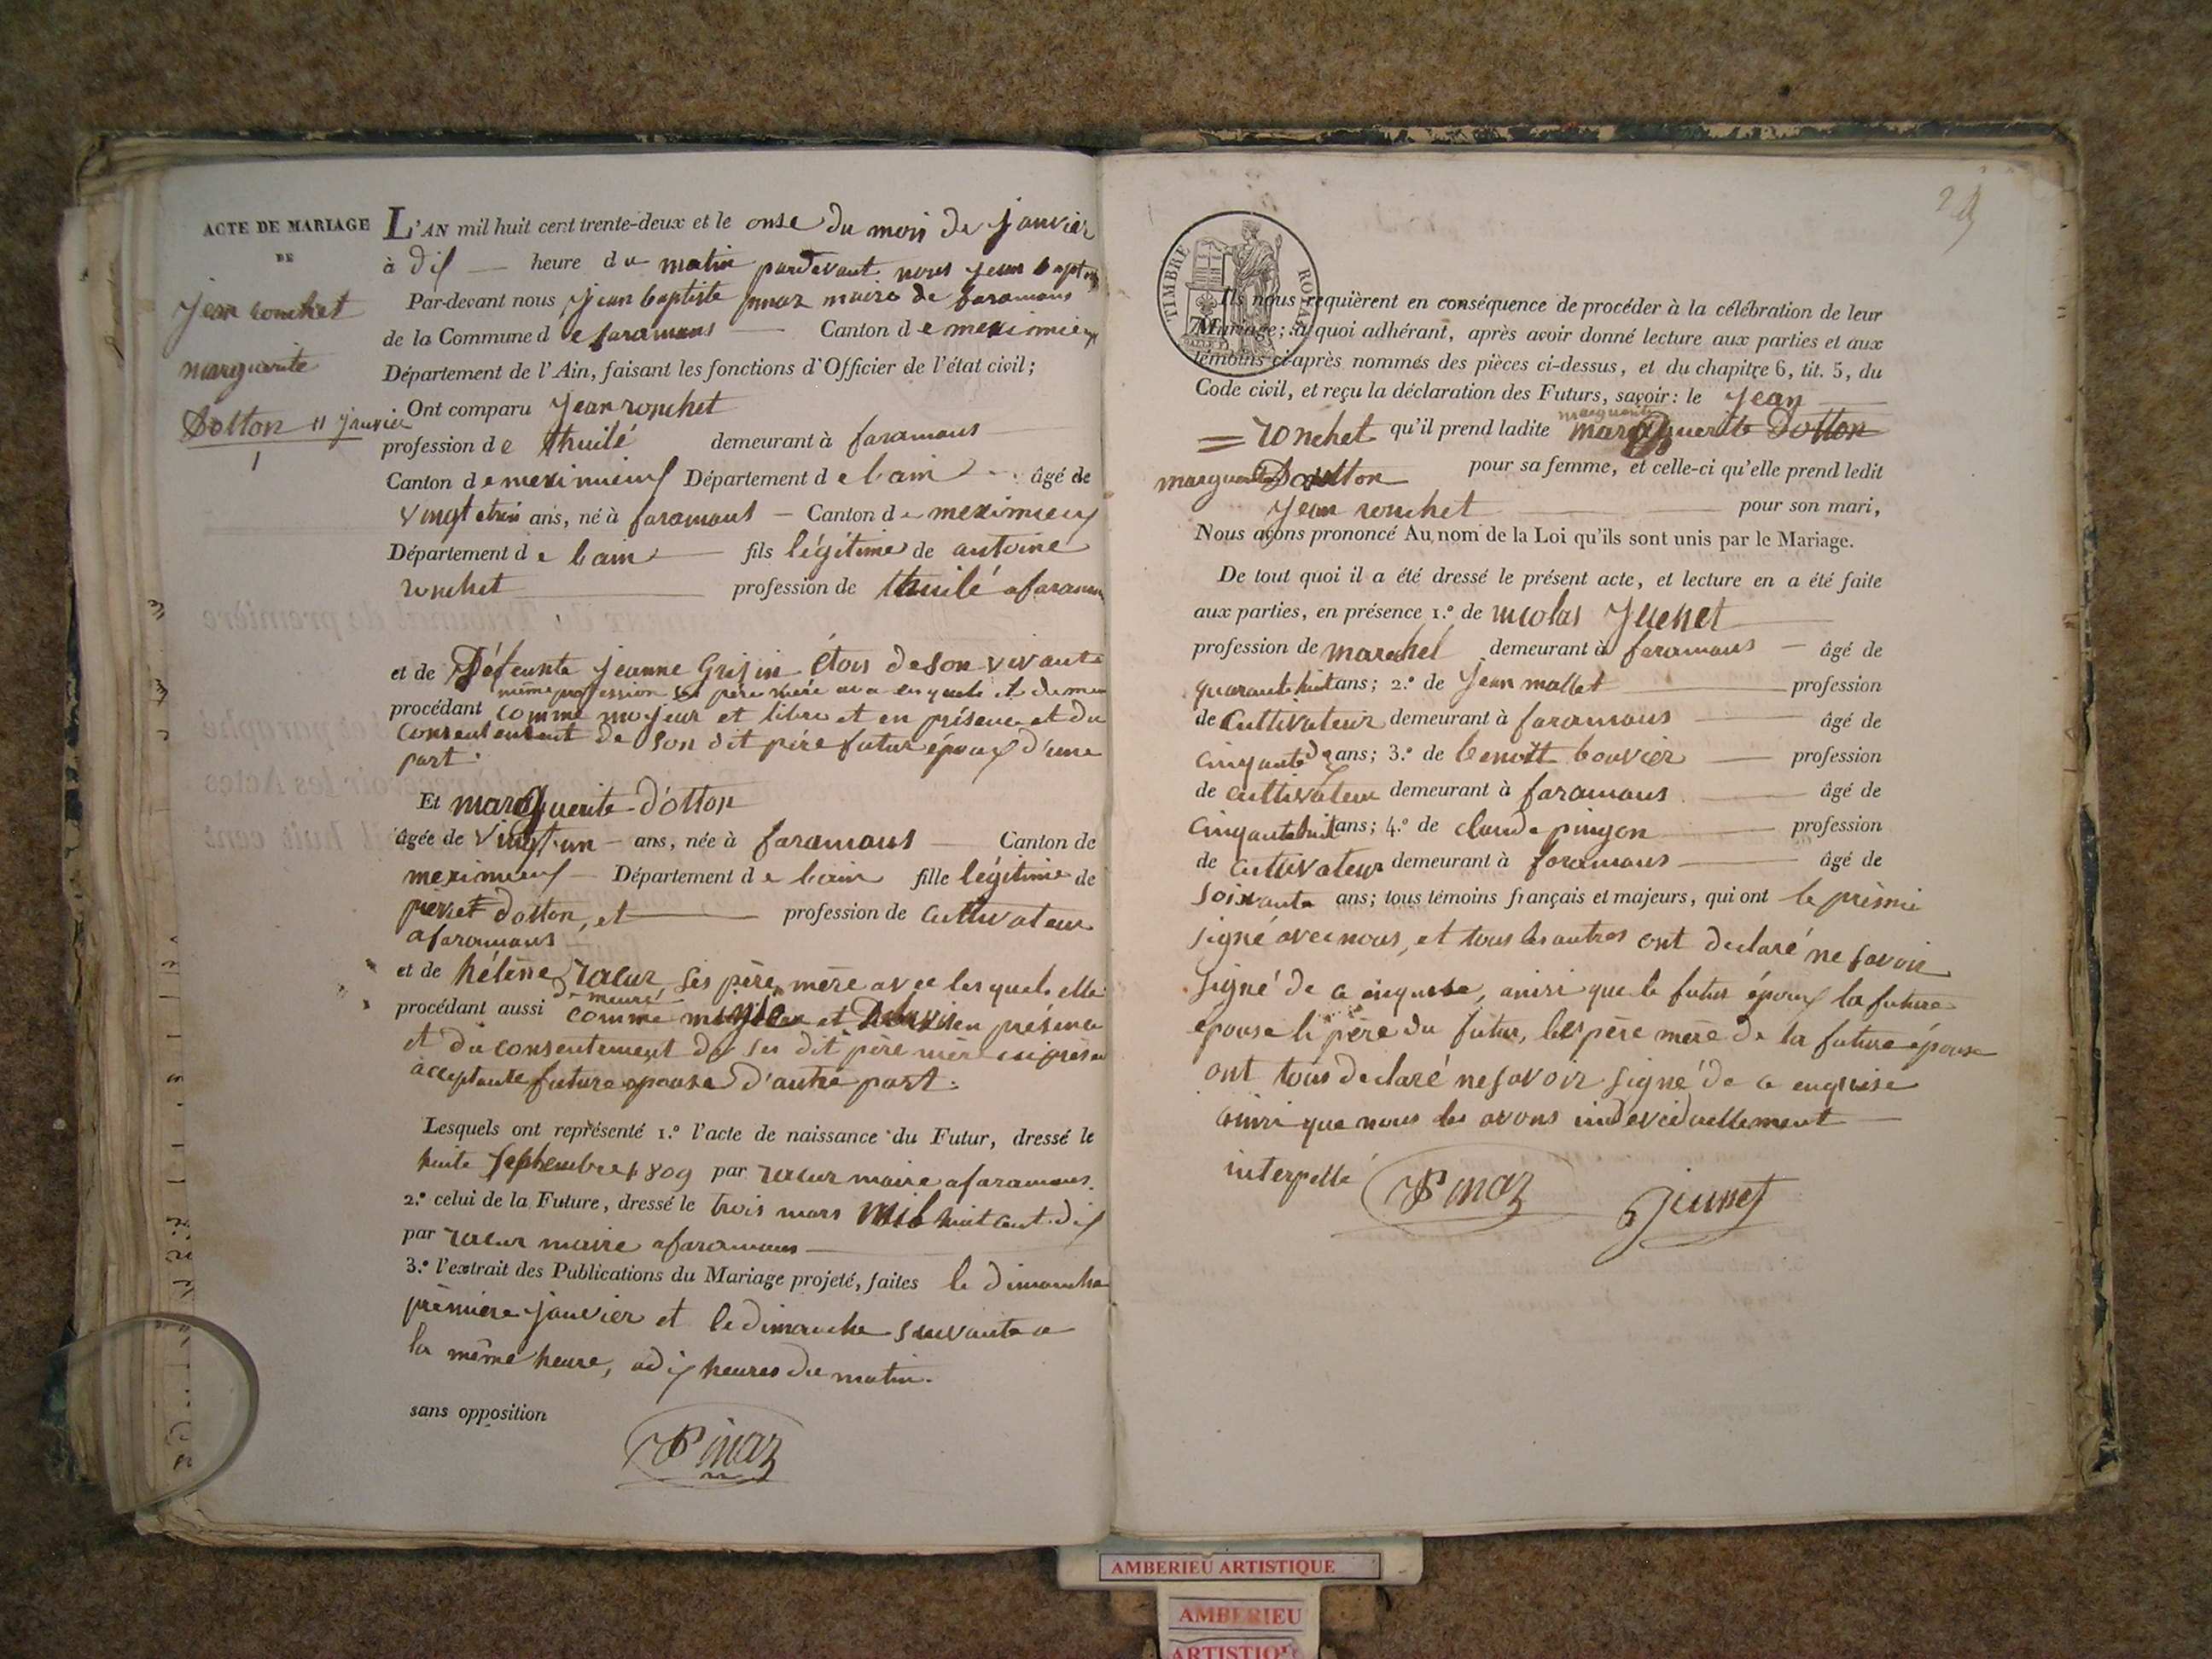 ACTE DE MARIAGE
DE
jean ronchet
marguerite
Dotton 11 janvier
1
L'AN mil huit cent trente-deux et le onse du mois de janvier
à dix heure du matin pardevant nous jean bapt
Par-devant nous jean baptiste maire de faramans
de la Commune de faramans Canton de meximieux
Département de l'Ain, faisant les fonctions d'Officier de l'état civil;
Ont comparu jean ronchet
profession de thuilé demeurant à faramans
Canton de meximieux Département de lain âgé de
vingt trois ans, né à faramans Canton de meximieux
Département de lain fils légitime de antoine
ronchet profession de thuilé a faramans
et de Défeunte jeanne Grisin étois de son vivante
même profession ses père mère avec lequele il demeure
procédant comme mojeur et libre et en présence et du
consentement de son dit père futur époux d'une
part.
Et marguerite d'otton
âgée de vingt-un ans, née à faramans Canton de
meximieux Département de lain fille légitime de
pierre dotton, et profession de cultivateur
a faramans
et de hélène racur ses père mère avec lesquels elle
demeure
procédant aussi comme et en présence
et du consentement de ses dit père mère
acceptante future epouse d'autre part.
Lesquels ont représenté 1.º l'acte de naissance du Futur, dressé le
huite septembre 1809 par racur maire a faramans.
2.º celui de la Future, dressé le trois mars mil huit cent dix
par racur maire a faramans
3.º l'extrait des Publications du Mariage projeté, faites le dimanche
première janvier et le dimanche suivante a
la même heure, a dix heures du matin.
sans opposition
2
TIMBRE ROYAL
Ils nous requièrent en conséquence de procéder à la célébration de leur
Mariage; à quoi adhérant, après avoir donné lecture aux parties et aux
témoins ci-après nommés des pièces ci-dessus, et du chapitre 6, tit. 5, du
Code civil, et reçu la déclaration des Futurs, savoir: le jean
marguerite
ronchet qu'il prend ladite marguerite Dotton
marguerite Dotton pour sa femme, et celle-ci qu'elle prend ledit
jean ronchet pour son mari,
Nous avons prononcé Au nom de la Loi qu'ils sont unis par le Mariage.
De tout quoi il a été dressé le présent acte, et lecture en a été faite
aux parties, en présence 1.º de nicolas Jeunet
profession de marechel demeurant à faramans âgé de
quarante huit ans; 2.º de jean mallet profession
de cultivateur demeurant à faramans âgé de
cinquante dix ans; 3.º de benoitt bouvier profession
de cultivateur demeurant à faramans âgé de
cinquante huit ans; 4.º de claude pingon profession
de cultivateur demeurant à faramans âgé de
soixante ans; tous témoins français et majeurs, qui ont le prémié
signé avec nous, et tous les autres ont declaré ne savoir
signé de ce enquise, ainsi que le futur époux la future
epouse le père du futur, les père mère de la future épouse
ont tous declaré ne savoir signé de ce enquise
ainsi que nous les avons indeviduellement
interpellé
Jeunet